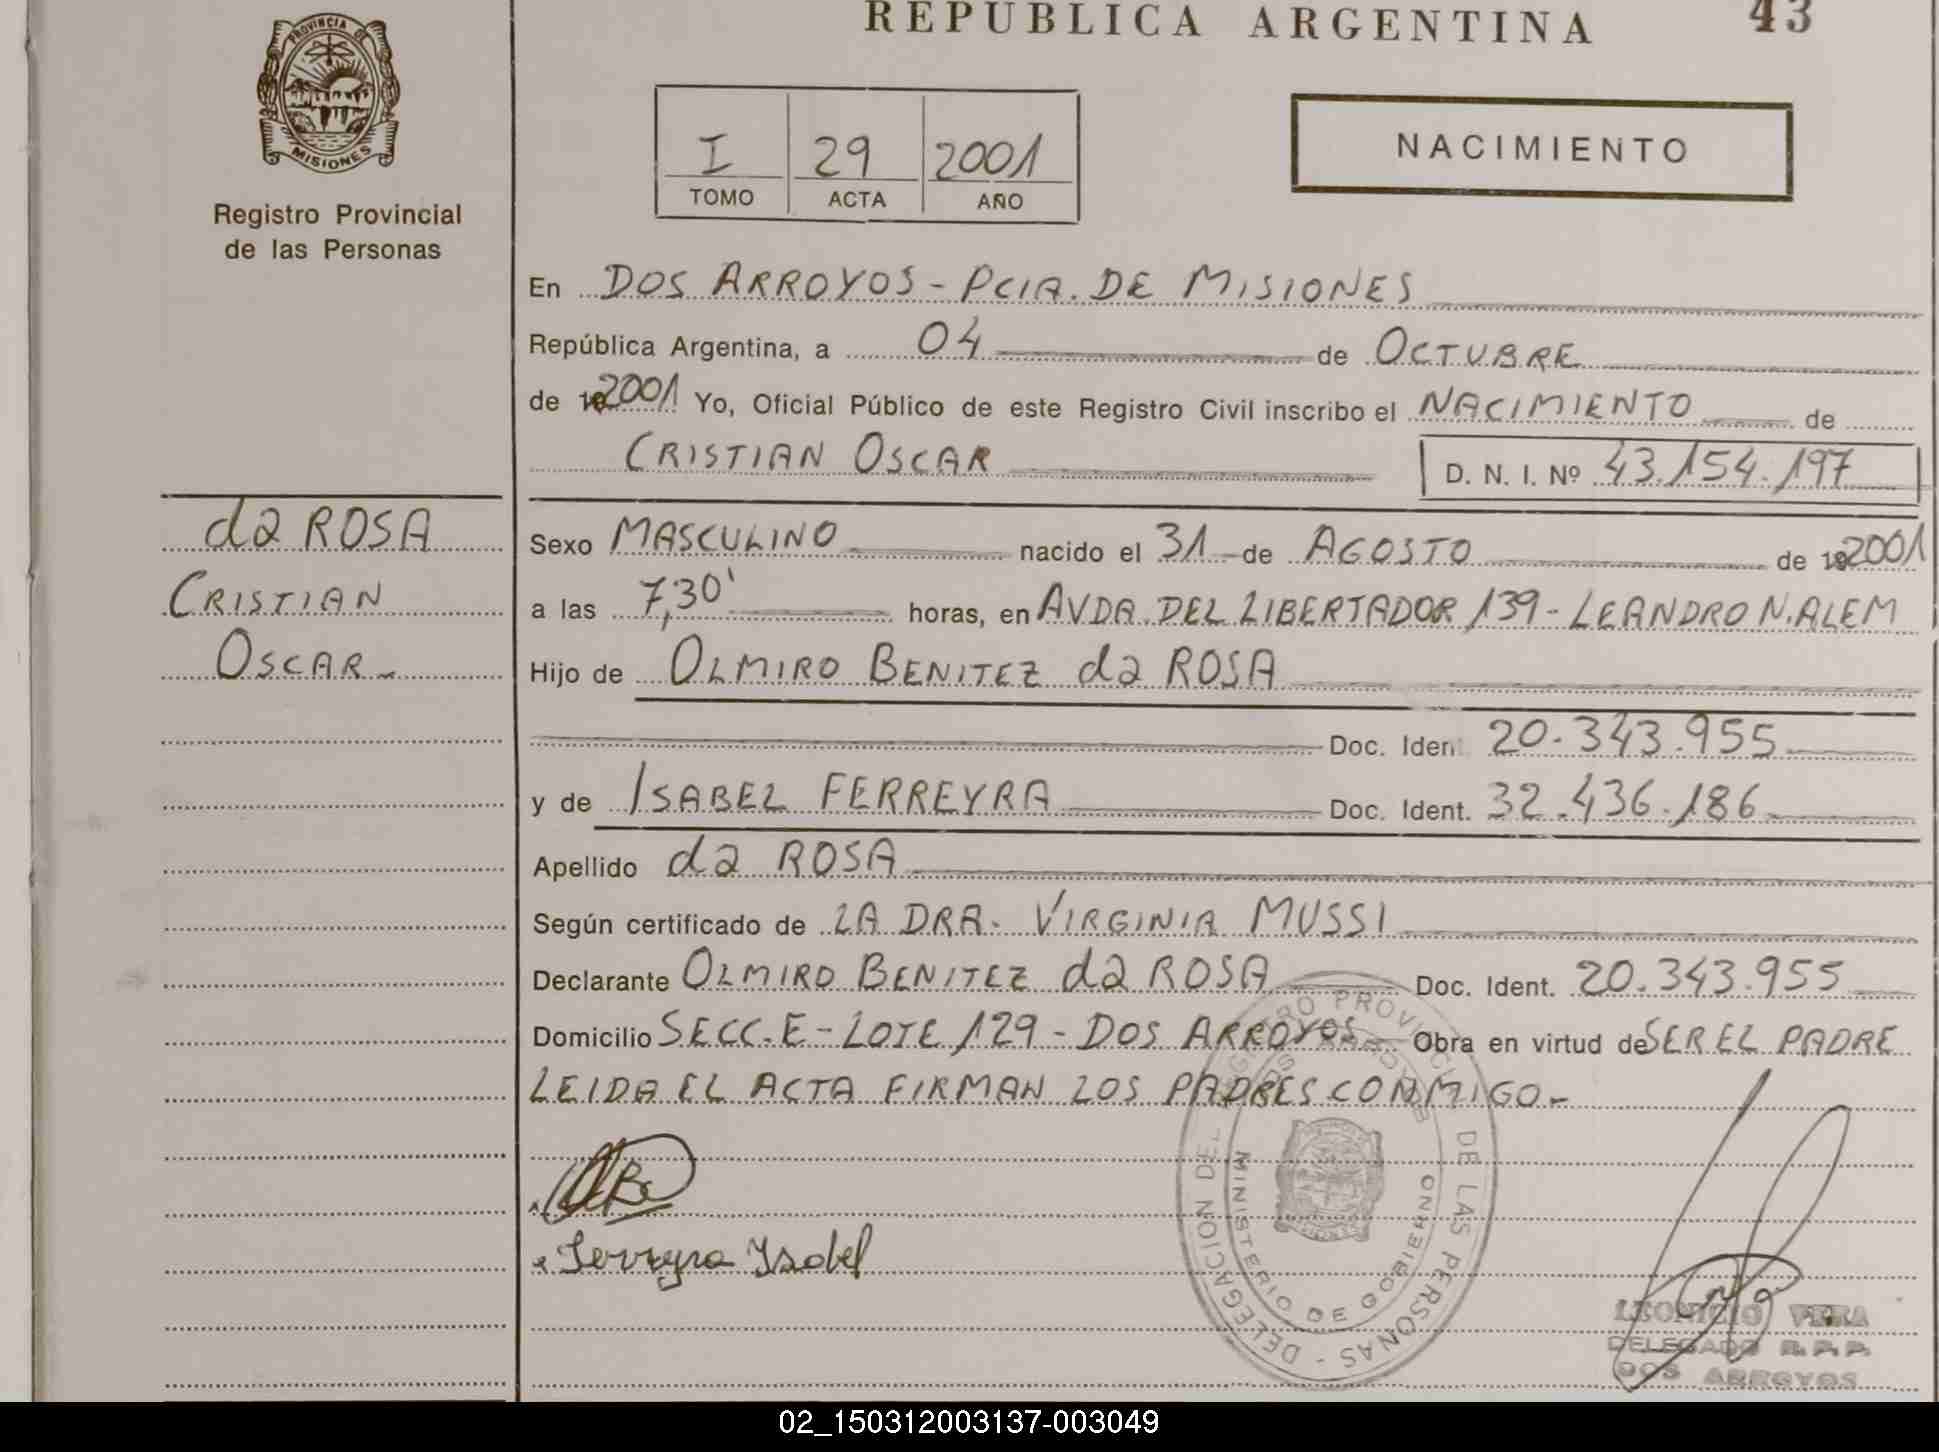 REPUBLICA ARGENTINA 43
PROVINCIA DE
MISIONES
Registro Provincial
de las Personas
I 29 2001
TOMO ACTA AÑO
NACIMIENTO
En DOS ARROYOS - PCIA. DE MISIONES
República Argentina, a 04 de OCTUBRE
de 19 2001 Yo, Oficial Público de este Registro Civil inscribo el NACIMIENTO de
CRISTIAN OSCAR D. N. I. Nº 43.154.197
da ROSA
CRISTIAN
OSCAR.-
Sexo MASCULINO nacido el 31 de AGOSTO de 19 2001
a las 7,30' horas, en AVDA. DEL LIBERTADOR 139 - LEANDRO N. ALEM
Hijo de OLMIRO BENITEZ da ROSA
Doc. Iden 20.343.955
y de ISABEL FERREYRA Doc. Ident. 32.436.186
Apellido da ROSA
Según certificado de LA DRA. VIRGINIA MUSSI
Declarante OLMIRO BENITEZ da ROSA Doc. Ident. 20.343.955
Domicilio SECC. E - LOTE 129 - DOS ARROYOS Obra en virtud de SER EL PADRE
LEIDA EL ACTA FIRMAN LOS PADRES CONMIGO.-
Ferreyra Isabel
DELEGACION DEL REGISTRO PROVINCIAL DE LAS PERSONAS -
DOS ARROYOS
MINISTERIO DE GOBIERNO
LEONICIO VERA
DELEGADO R.P.P.
DOS ARROYOS
02_150312003137-003049